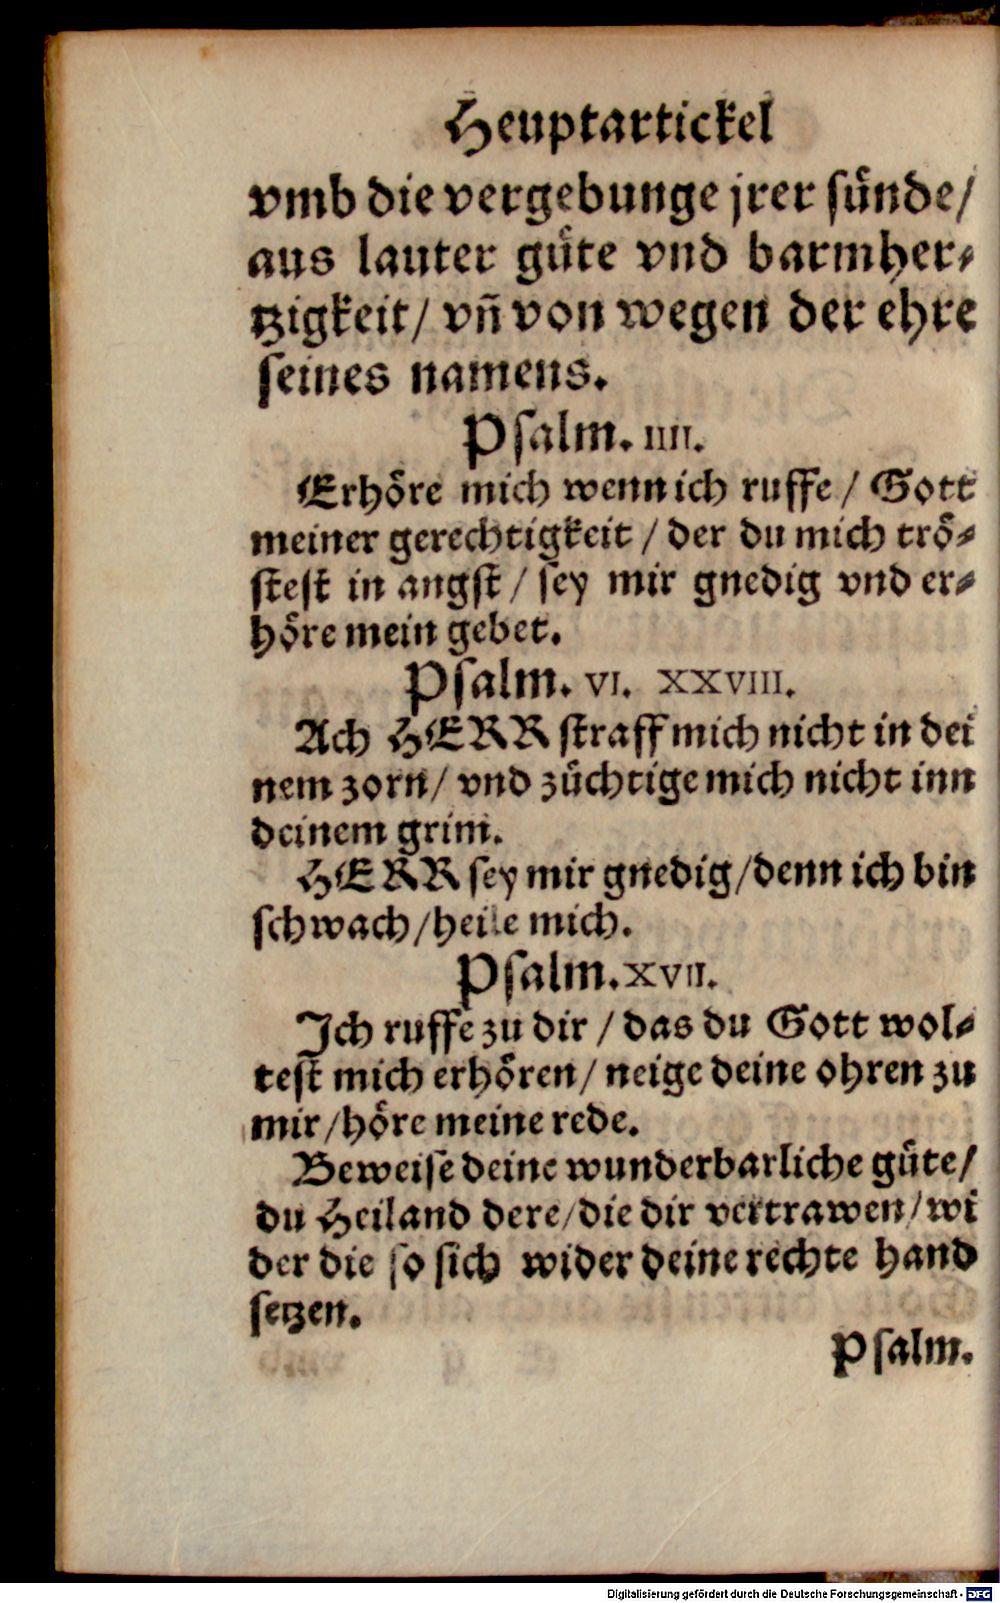 Heuptartickel
vmb die vergebunge jrer sünde/
aus lauter güte vnd barmher⸗
tzigkeit/ vñ von wegen der ehre
seines namens.
Psalm. IIII.
Erhöre mich wenn ich ruffe / Gott
meiner gerechtigkeit / der du mich trö⸗
stest in angst / sey mir gnedig vnd er⸗
höre mein gebet.
Psalm. VI. XXVIII.
Ach HERR straff mich nicht in dei
nem zorn/ vnd züchtige mich nicht inn
deinem grim.
HERR sey mir gnedig/denn ich bin
schwach/heile mich.
Psalm. XVII.
Ich ruffe zu dir / das du Gott wol⸗
test mich erhören/ neige deine ohren zu
mir/höre meine rede.
Beweise deine wunderbarliche güte/
du Heiland dere/die dir vertrawen/wi
der die so sich wider deine rechte hand
setzen.
Psalm.
Digitalisierung gefördert durch die Deutsche Forschungsgemeinschaft - DFG